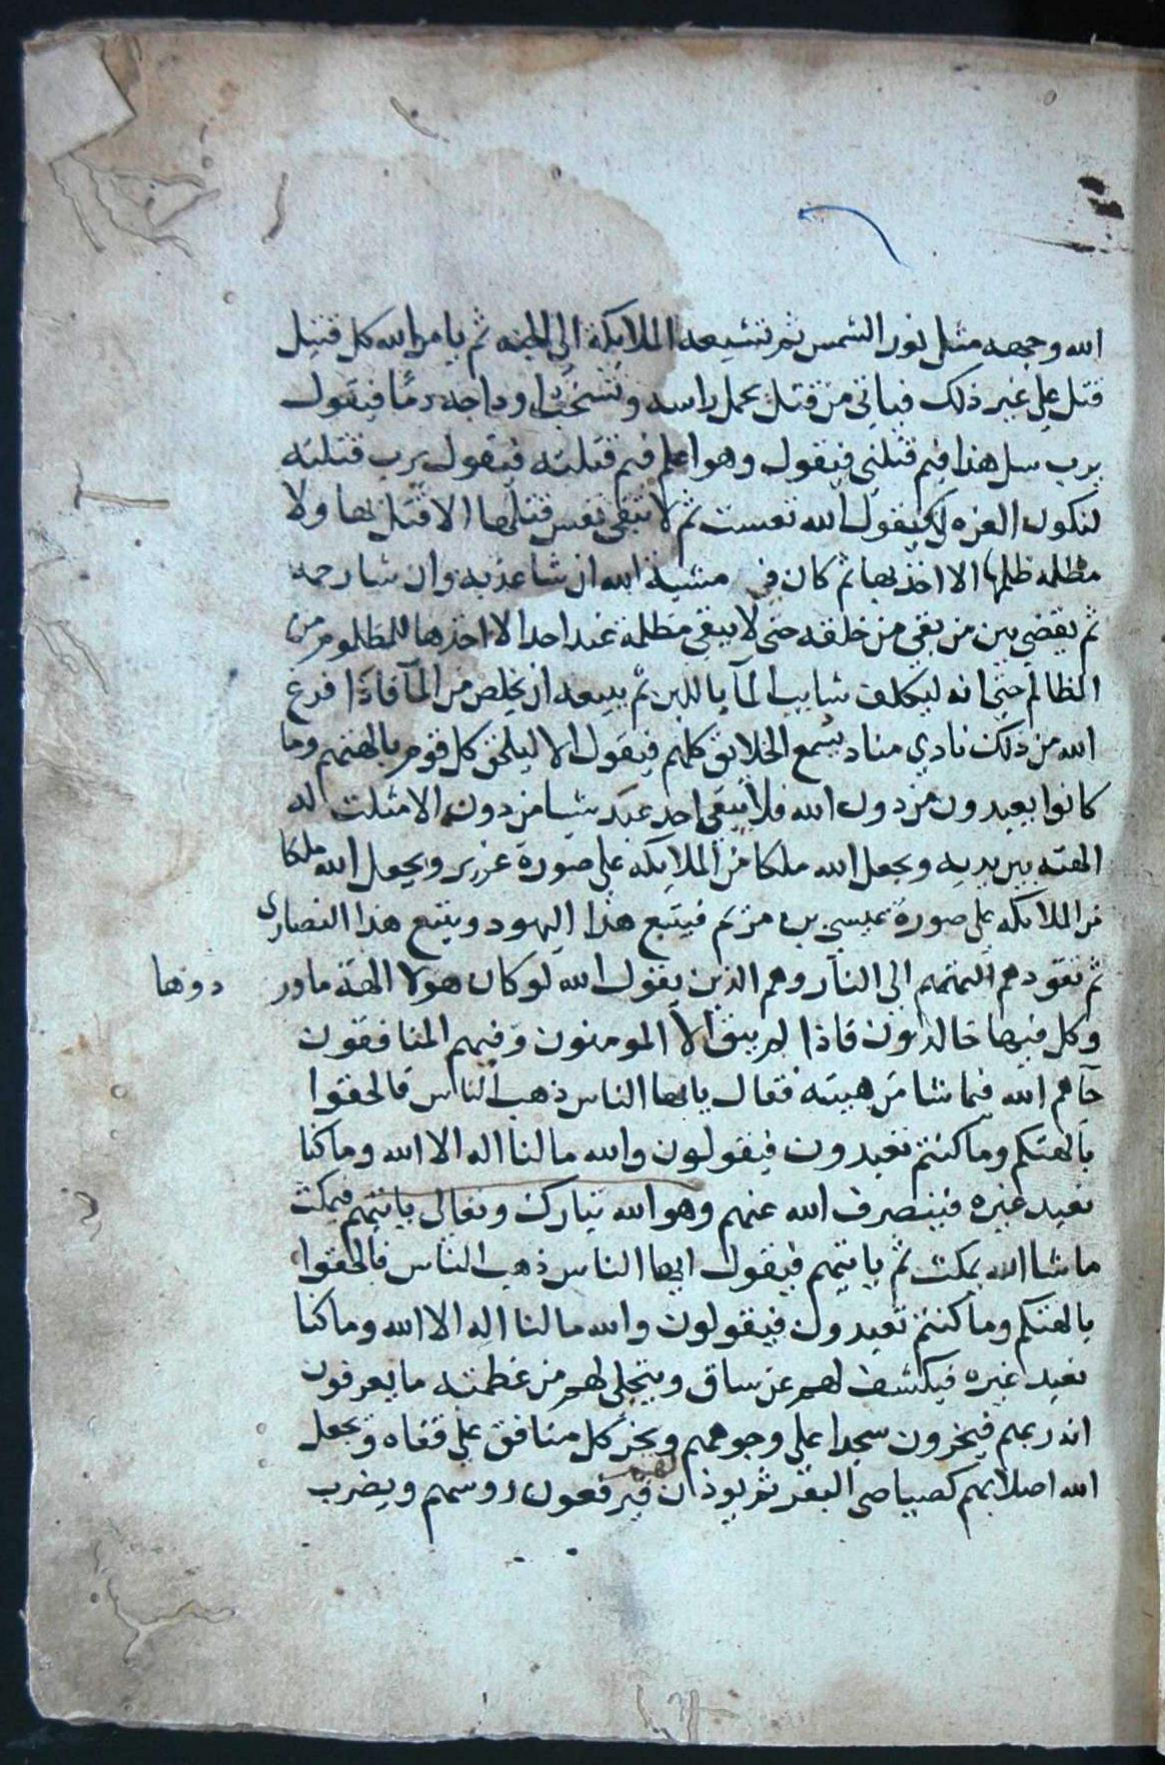 الله وجهه مثل نور الشمس ثم تشيعه الملايكة الي الجنه ثم يامر الله كل قتيل
قتل علي غير ذلك فياتي من قتل يحمل راسه وتشخب اوداجه دما فيقول
يرب سل هذا فيم قتلني فيقول وهو اعلم فيم قتلته فيقول يرب قتلته
لتكون العزه لي فيقول الله تعست ثم لا تبقي نفس قتلها الا قتل بها ولا
مظلمه ظلمها الا اخذ بها ثم كان في مشية الله ان شا عذبه وان شا رحمه
ثم يقضي بين من بقي من خلقه حتي لا يبقي مظلمة عند احد الا اخذها للمظلوم من
الظالم حتي انه ليكلف شايب المآ باللبن ثم يبيعه ان يخلص من المآ فاذا فرغ
الله من ذلك نادي مناد يسمع الخلايق كلهم فيقول الا ليلحق كل قوم بالهتهم وما
كانوا يعبدون من دون الله فلا يبقي احد عبد شيا من دون الا مثلت له
الهته بين يديه ويجعل الله ملكا من الملايكه علي صورة عزير ويجعل الله ملكا
من الملايكه علي صورة عيسي بن مريم فيتبع هذا اليهود ويتبع هذا النصاري
ثم تقودهم الهتهم الي النار وهم الذين يقول الله لو كان هولا الهة ما ور دوها
وكل فيها خالدون فاذا لم يبق الا المومنون وفيهم المنافقون
جآهم الله فيما شا من هيبته فقال يايها الناس ذهب الناس فالحقوا
بالهتكم وما كنتم تعبدون فيقولون والله مالنا اله الا الله وما كنا
نعبد غيره فينصرف الله عنهم وهو الله تبارك وتعالي ياتيهم فيمكث
ما شا الله يمكث ثم ياتيهم فيقول ايها الناس ذهب الناس فالحقوا
بالهتكم وما كنتم تعبدون فيقولون والله مالنا اله الا الله وما كنا
نعبد غيره فيكشف لهم عن ساق ويتجلي لهم من عظمته ما يعرفون
انه ربهم فيخرون سجدا علي وجوههم ويخر كل منافق علي قفاه ويجعل
الله اصلابهم كصياصي البقر ثم يوذن لهم فيرفعون روسهم ويضرب